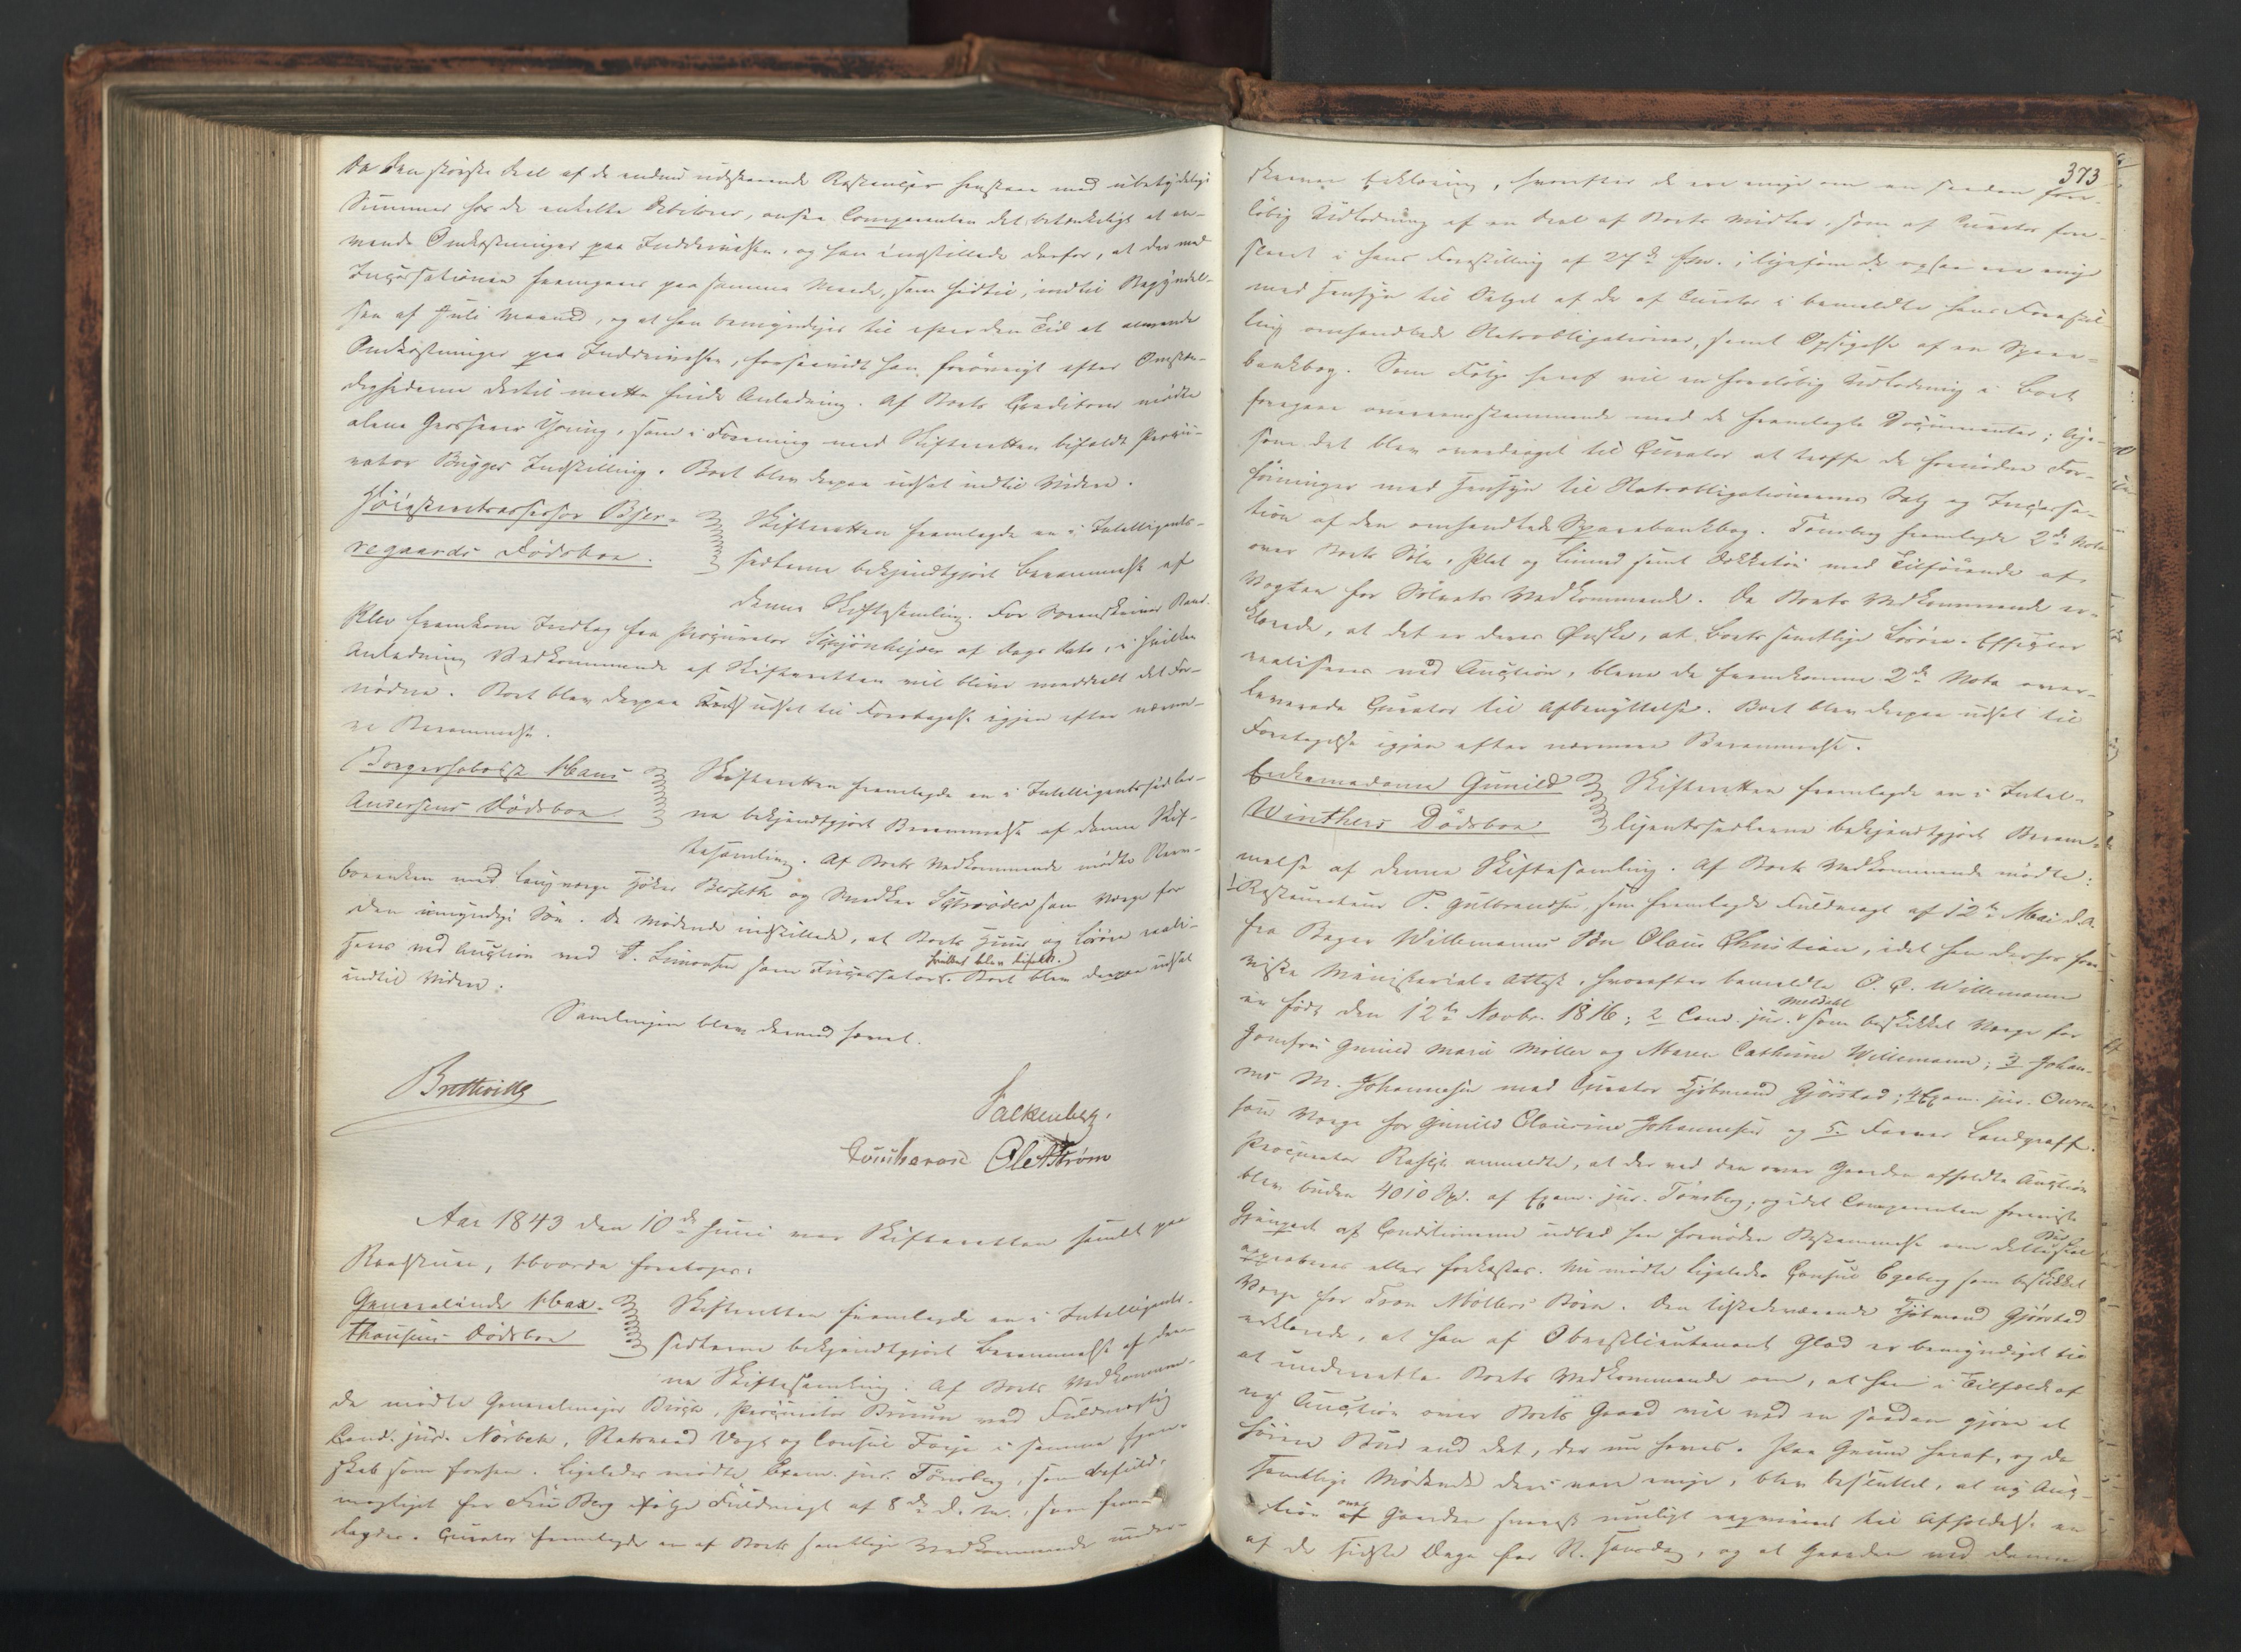 Da den største Deel af de endnu udestaaende Restancer henstaae med ubetydelige
Summer hos de enkelte Debitorer, ansaae Comparenten det betænkeligt at an-
vende Omkostninger paa Inddrivelsen, og han indstillede derfor, at der med
Incassationen fremgaaes paa samme Maade, som hidtil, indtil Begyndel-
sen af Juli Maaned, og at han bemyndiges til efter den Tid at anvende
Omkostninger paa Inddrivelsen, forsaavidt han forøvrigt efter Omstæn-
dighederne dertil maatte finde Anledning. Af Boets Creditorer mødte
alene Grosserer Young, som i Forening med Skifteretten bifaldt Procu-
rator Bugges Indstilling. Boet blev derpaa udsat indtil Videre.
Høiesteretsassessor Bjer-
regaards Dødsboe.
Skifteretten fremlagde en i Intelligents-
sedlerne bekjendtgjort Berammelse af
denne Skiftesamling. For Sorenskriver
blev fremkom Indlæg fra Procurator Schjønhejder af Dags Dato, i hvilken
Anledning Vedkommende af Skifteretten vil blive meddeelt det For-
nødne. Boet blev derpaa udsat til Foretagelse igjen efter nærme-
re Berammelse.
Borgerhoboist Hans
Andersens Dødsboe
Skifteretten fremlagde en i Intelligentssedler-
ne bekjendtgjort Berammelse af denne Skif-
tesamling. Af Boets Vedkommende mødte Sterv-
boenken med Laugværge Høker Berseth og Snedker Schrøder som Værge for
den umyndige Søn. De Mødende indstillede, at Boets Huus og Løsøre reali-
seres ved Auction med S. Simonsen som Incassator, hvilket blev bifaldt. Boet blev derpaa udsat
indtil Videre.
Samlingen blev dermed hævet.
Bretteville
Falkenberg.
Ole A Strøm
Aar 1843 den 10de Juni var Skifteretten samlet paa
Raadstuen, Hvorda foretoges:
Generalinde Hax-
thausens Dødsboe
Skifteretten fremlagde en i Intelligents-
sedlerne bekjendtgjort Berammelse af den-
ne Skiftesamling. Af Boets Vedkommen-
de mødte Generalmajor Birch, Procurator Bruun ved Fuldmægtig
Cand. jur. Nørbek, Statsraad Vogt og Consul Faye i samme Egen-
skab som forhen. Ligeledes mødte Exam. jur. Tønsberg, som befuld-
mægtiget for Fru Berg ifølge Fuldmagt af 8de d. M., som frem-
lagdes. Curator fremlagde en af Boets samtlige Vedkommende under-
373
skreven Erklæring, hvorefter de ere enige om en saadan fore-
løbig Udlodning af en Deel af Boets Midler, som af Curator fore-
slaaet i hans Forestilling af 27de f. M., ligesom de ogsaa ere enige
med Hensyn til Salget af de af Curator i bemeldte hans Forestil-
ling omhandlede Statsobligationer, samt Opsigelse af en Spare-
bankbog. Som Følge heraf vil en foreløbig Udlodning i Boet
foregaae overeensstemmende med de fremlagte Documenter; lige-
som det blev overdraget til Curator at træffe de fornødne For-
føininger med Hensyn til Statsobligationernes Salg og Incassa-
tion af den omhandlede Sparebankbog. Tønsberg fremlagde 2de Noter
over Boets Sølv, Plet og Linned samt Dækketøi med Tilføiende af
Vægten for Sølvets Vedkommende. Da Boets Vedkommende er-
klærede, at det er deres Ønske, at Boets samtlige Løsøre-Effecter
realiseres ved Auction, bleve de fremkomne 2de Noter over-
leverede Curator til Afbenyttelse. Boet blev derpaa udsat til
Foretagelse igjen efter nærmere Berammelse.
Enkemadame Gunild
Winthers Dødsboe
Skifteretten fremlagde en i Intel-
ligentssedlerne bekjendtgjort Beram-
melse af denne Skiftesamling. Af Boets Vedkommende mødte:
1 Restaurateur P. Gulbrandsen, som fremlagde Fuldmagt af 12te Mai d. A.
fra Bager Willemanns Søn Claus Christian, idet han derhos fore-
viste Ministerial-Attest, hvorefter bemeldte C. C. Willemann
er født den 12te Novbr. 1816; 2 Cand. jur. Meldahl som beskikket Værge for
Jomfru Gunild Marie Møller og Maren Cathrine Willemann; 3 Johan-
ne M. Johannesen med Curator Kjøbmand Gjørstad; 4 Exam. jur. Owren
som Værge for Gunild Claurine Johannesen og 5. Farver Landgraff.
Procurator Rasch anmeldte, at der ved den over Gaarden afholdte Auction
blev buden 4010 Spd. af Exam. jur. Tønsberg, og idet Comparenten foreviste
Gjenpart af Conditionerne udbad han fornøden Bestemmelse om dette Bud skal
approberes eller forkastes. Nu mødte ligeledes Consul Egeberg som beskikket
Værge for Møllers Børn. Den tilstedeværende Kjøbmand Gjørstad
erklærede, at han af Oberstlieutenant Glad er bemyndiget til
at underrette Boets Vedkommende om, at han i Tilfælde af
ny Auction over Boets Gaard vil ved en saadan gjøre et
høiere Bud end det, der nu haves. Paa Grund heraf, og da
samtlige Mødende deri vare enige, blev besluttet, at ny Auc-
tion over Gaarden snarest muligt reqvireres til Afholdelse en
af de sidste Dage før St. Hansdag, og at Gaarden ved denne